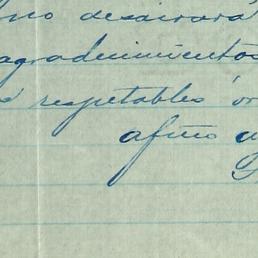 no desairará
agradecimientos
respetables or
afmo a